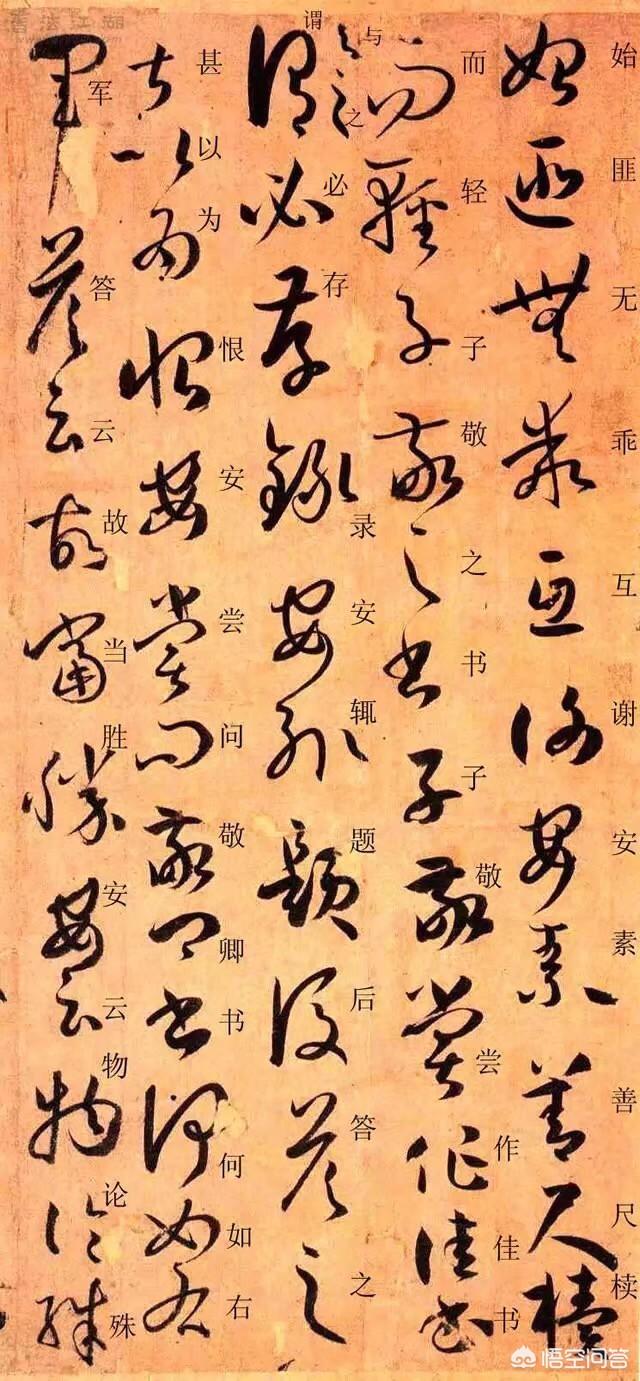 始匪无乖互谢安素善尺椟
而轻子敬之书子敬尝作佳书
与之
谓必存录安辄题后答之
甚以为恨安尝问敬卿书何如右
军答云故当胜安云物论殊
书法江湖
悟空问答